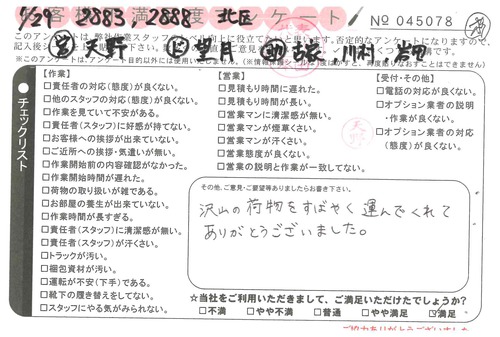 お客様満足度アンケート
9/29 2883 2888 北区
No 045078
営 天野 ド 望月 助
このアンケートは、弊社作業スタッフのレベル向上に役立てたいと思います。否定的なアンケートになりますので、
※このアンケートは、アンケート目的以外には使用いたしません。
チェックリスト
【作業】
□責任者の対応(態度)が良くない。
□他のスタッフの対応(態度)が良くない。
□作業を見ていて不安がある。
□責任者(スタッフ)に好感が持てない。
□お客様への挨拶が出来ていない。
□ご近所への挨拶・気遣いが無い。
□作業開始前の内容確認がなかった。
□作業開始時間が遅れた。
□荷物の取り扱いが雑である。
□お部屋の養生が出来ていない。
□作業時間が長すぎる。
□責任者(スタッフ)に清潔感が無い。
□責任者(スタッフ)が汗くさい。
□トラックが汚い。
□梱包資材が汚い。
□運転が不安(下手)である。
□靴下の履き替えをしてない。
□スタッフにやる気がみられない。
【営業】
□見積もり時間に遅れた。
□見積もり時間が長い。
□営業マンに清潔感が無い。
□営業マンが煙草くさい。
□営業マンが汗くさい。
□営業態度が良くない。
□営業の説明と作業が一致してない。
【受付・その他】
□電話の対応が良くない。
□オプション業者の説明
・作業が良くない。
□オプション業者の対応
(態度)が良くない。
その他、ご意見・ご要望等ありましたらお書き下さい。
沢山の荷物をすばやく運んでくれて
ありがとうございました。
☆当社をご利用いただきまして、ご満足いただけたでしょうか?
□不満 □やや不満 □普通 □やや満足 ☑満足
ご協力ありがとうございました